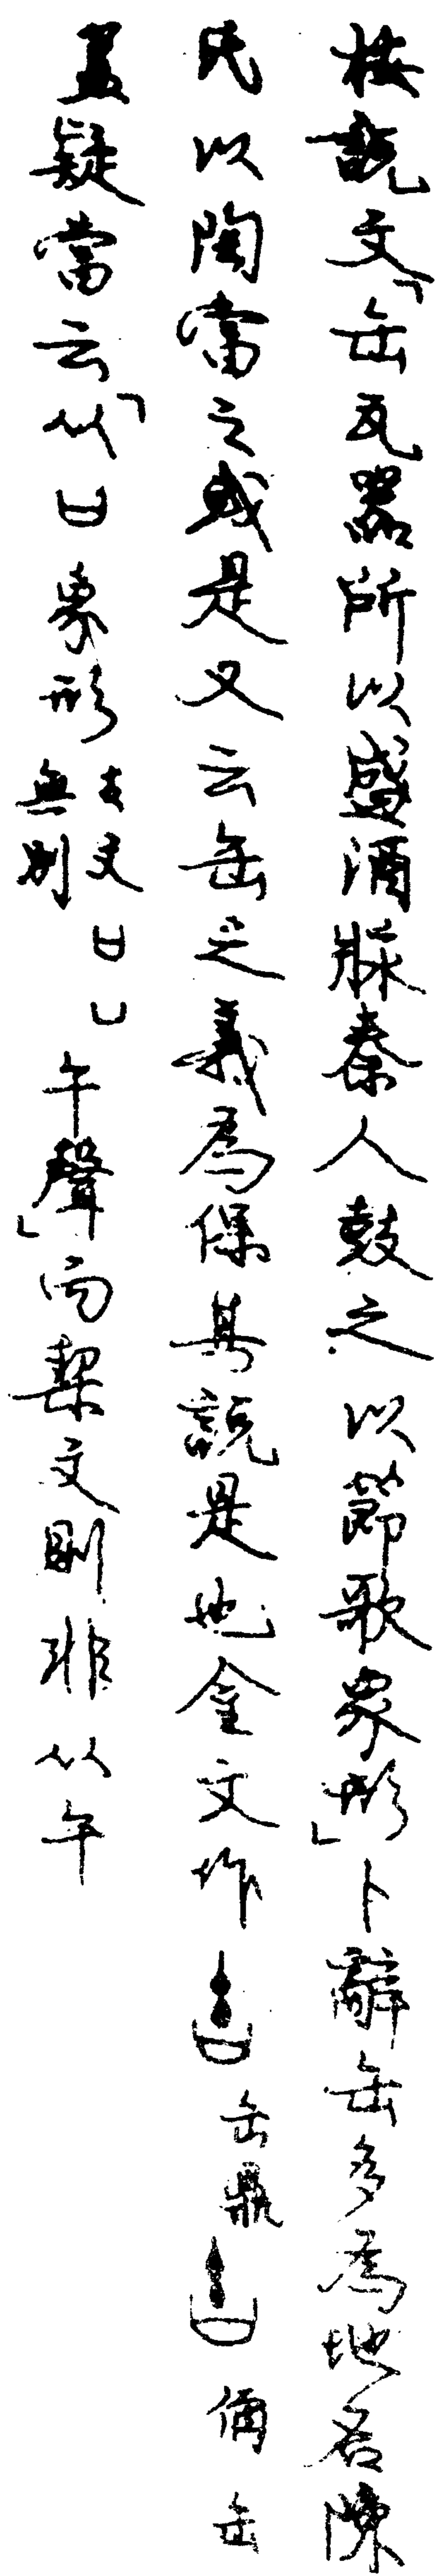 按説文「缶瓦器所以盛酒𤖅秦人鼓之以節歌象形」卜辭缶多為地名陳
氏以陶當之或是又云缶之義為保其説是也金文作 缶鼎 缶
蓋疑當云「从𠙵象形古文𠙵凵無別午聲」而栔文則非从午